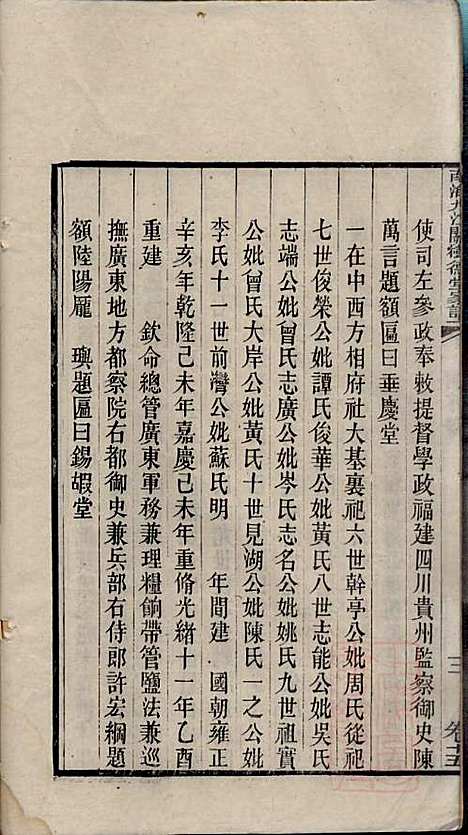 使司左參政奉敕提督學政福建四川貴州監察御史陳
萬言題額匾曰垂慶堂
一在中西方相府社大基裏祀六世幹亭公妣周氏從祀
七世俊榮公妣譚氏俊華公妣黃氏八世志能公妣吳氏
志端公妣曾氏志廣公妣岑氏志名公妣姚氏九世祖實
公妣曾氏大岸公妣黃氏十世見湖公妣陳氏一之公妣
李氏十一世前灣公妣蘇氏明　年間建　國朝雍正
辛亥年乾隆己未年嘉慶己未年重脩光緒十一年乙酉
重建　欽命總管廣東軍務兼理糧餉帶管鹽法兼巡
撫廣東地方都察院右都御史兼兵部右侍郎許宏綱題
額陸陽龎　璵題匾曰錫嘏堂
三
卷十五